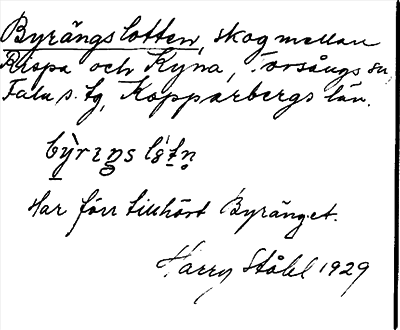 Byrängslotten, skog mellan
Rispa och Kyna, Torsångs sn,
Falu s. tg, Kopparbergs län.
Har förr tillhört Byränget.
Harry Ståhl 1929